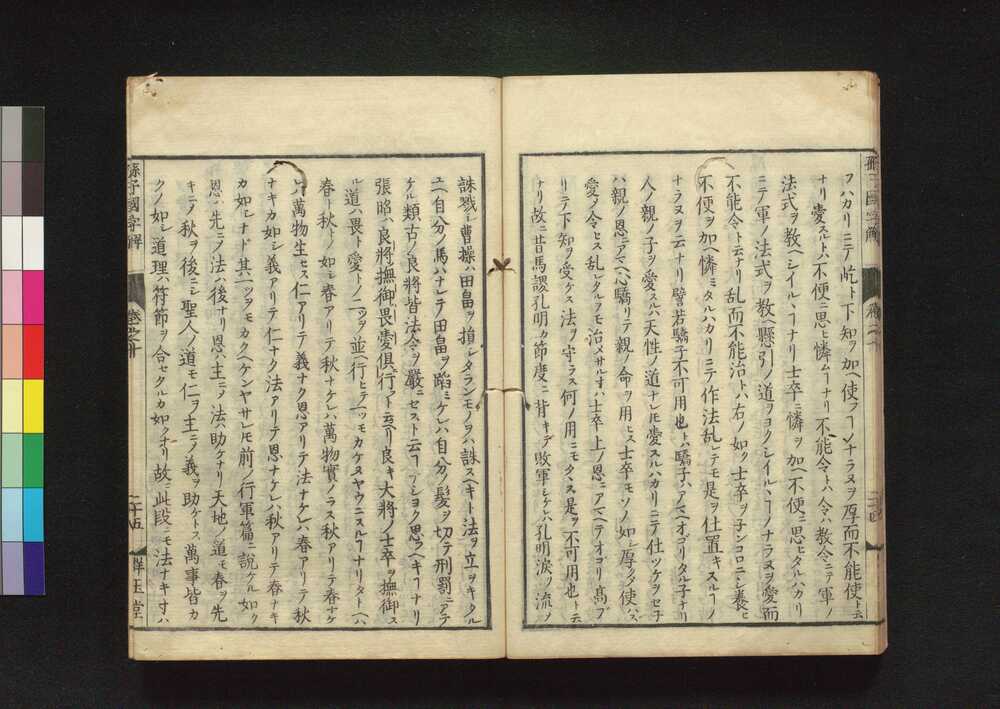 フハカリニテ此ト下知ヲ加ヘ使フヿノナラヌヲ厚而不能使ト云
ナリ愛スルトハ不便ニ思ヒ憐ムヿナリ不能令トハ令ハ教令ニテ軍ノ
法式ヲ教ヘシイルヽヿナリ士卒ニ憐ヲ加ヘ不便ニ思ヒタルハカリ
ニテ軍ノ法式ヲ教ヘ懸引ノ道ヲヨクシイルヽヿノナラヌヲ愛而
不能令ト云ナリ乱而不能治トハ右ノ如ク士卒ヲ子ンコロニシ養ヒ
不便ヲ加ヘ憐ミタルハカリニテ作法乱レテモ是ヲ仕置キスルヿノ
ナラヌヲ云ナリ譬若驕子不可用也トハ驕子ハアマヘオゴリタル子ナリ
人ノ親ノ子ヲ愛スルハ天性ノ道ナレモ愛スルハカリニテ仕ツケヲセ子
ハ親ノ恩ニアマヘ心驕リテ親ノ命ヲ用ヒス士卒モソノ如ク厚クメ使ハス
愛メ令セス乱レタルヲモ治メサル寸ハ士卒上ノ恩ニアマヘテオゴリ高ブ
リテ下知ヲ受ケス法ヲ守ラス何ノ用ニモタヽス是ヲ不可用也ト云
ナリ故ニ昔馬謖孔明カ節度ニ背キテ敗軍シケレハ孔明涙ヲ流シ
誅戮シ曹操ハ田畠ヲ損シタランモノヲハ誅スヘキト法ヲ立ヲキタル
ユヘ自分ノ馬ハナレテ田畠ヲ蹈ミケレハ自分ノ髪ヲ切テ刑罰ニアテ
ケル類古ノ良將皆法令ヲ嚴ニセスト云ヿナシヨク思フヘキヿナリ
張昭ハ良將撫御畏愛俱行ト云ヘリ良キ大將ノ士卒ヲ撫御ス
ル道ハ畏ト愛トノ二ツヲ並ヘ行ヒテ一ツモカケヌヤウニスルヿナリタトヘハ
春ト秋トノ如シ春アリテ秋ナケレハ萬物實ノラス秋アリテ春ナケ
レハ萬物生セス仁アリテ義ナク恩アリテ法ナケレハ春アリテ秋
ナキカ如シ義アリテ仁ナク法アリテ恩ナケレハ秋アリテ春ナキ
カ如シナド其一ツヲモカクヘケンヤサレモ前ノ行軍篇ニ說ケル如ク
恩ハ先ニメ法ハ後ナリ恩ハ主ニメ法ハ助ケナリ天地ノ道モ春ヲ先
キニメ秋ヲ後ニシ聖人ノ道モ仁ヲ主ニメ義ヲ助ケトス萬事皆カ
クノ如シ道理ハ符節ヲ合セタルカ如クナリ故ニ此段ニモ法ナキ寸ハ
孫子國字解
卷之十
二十五